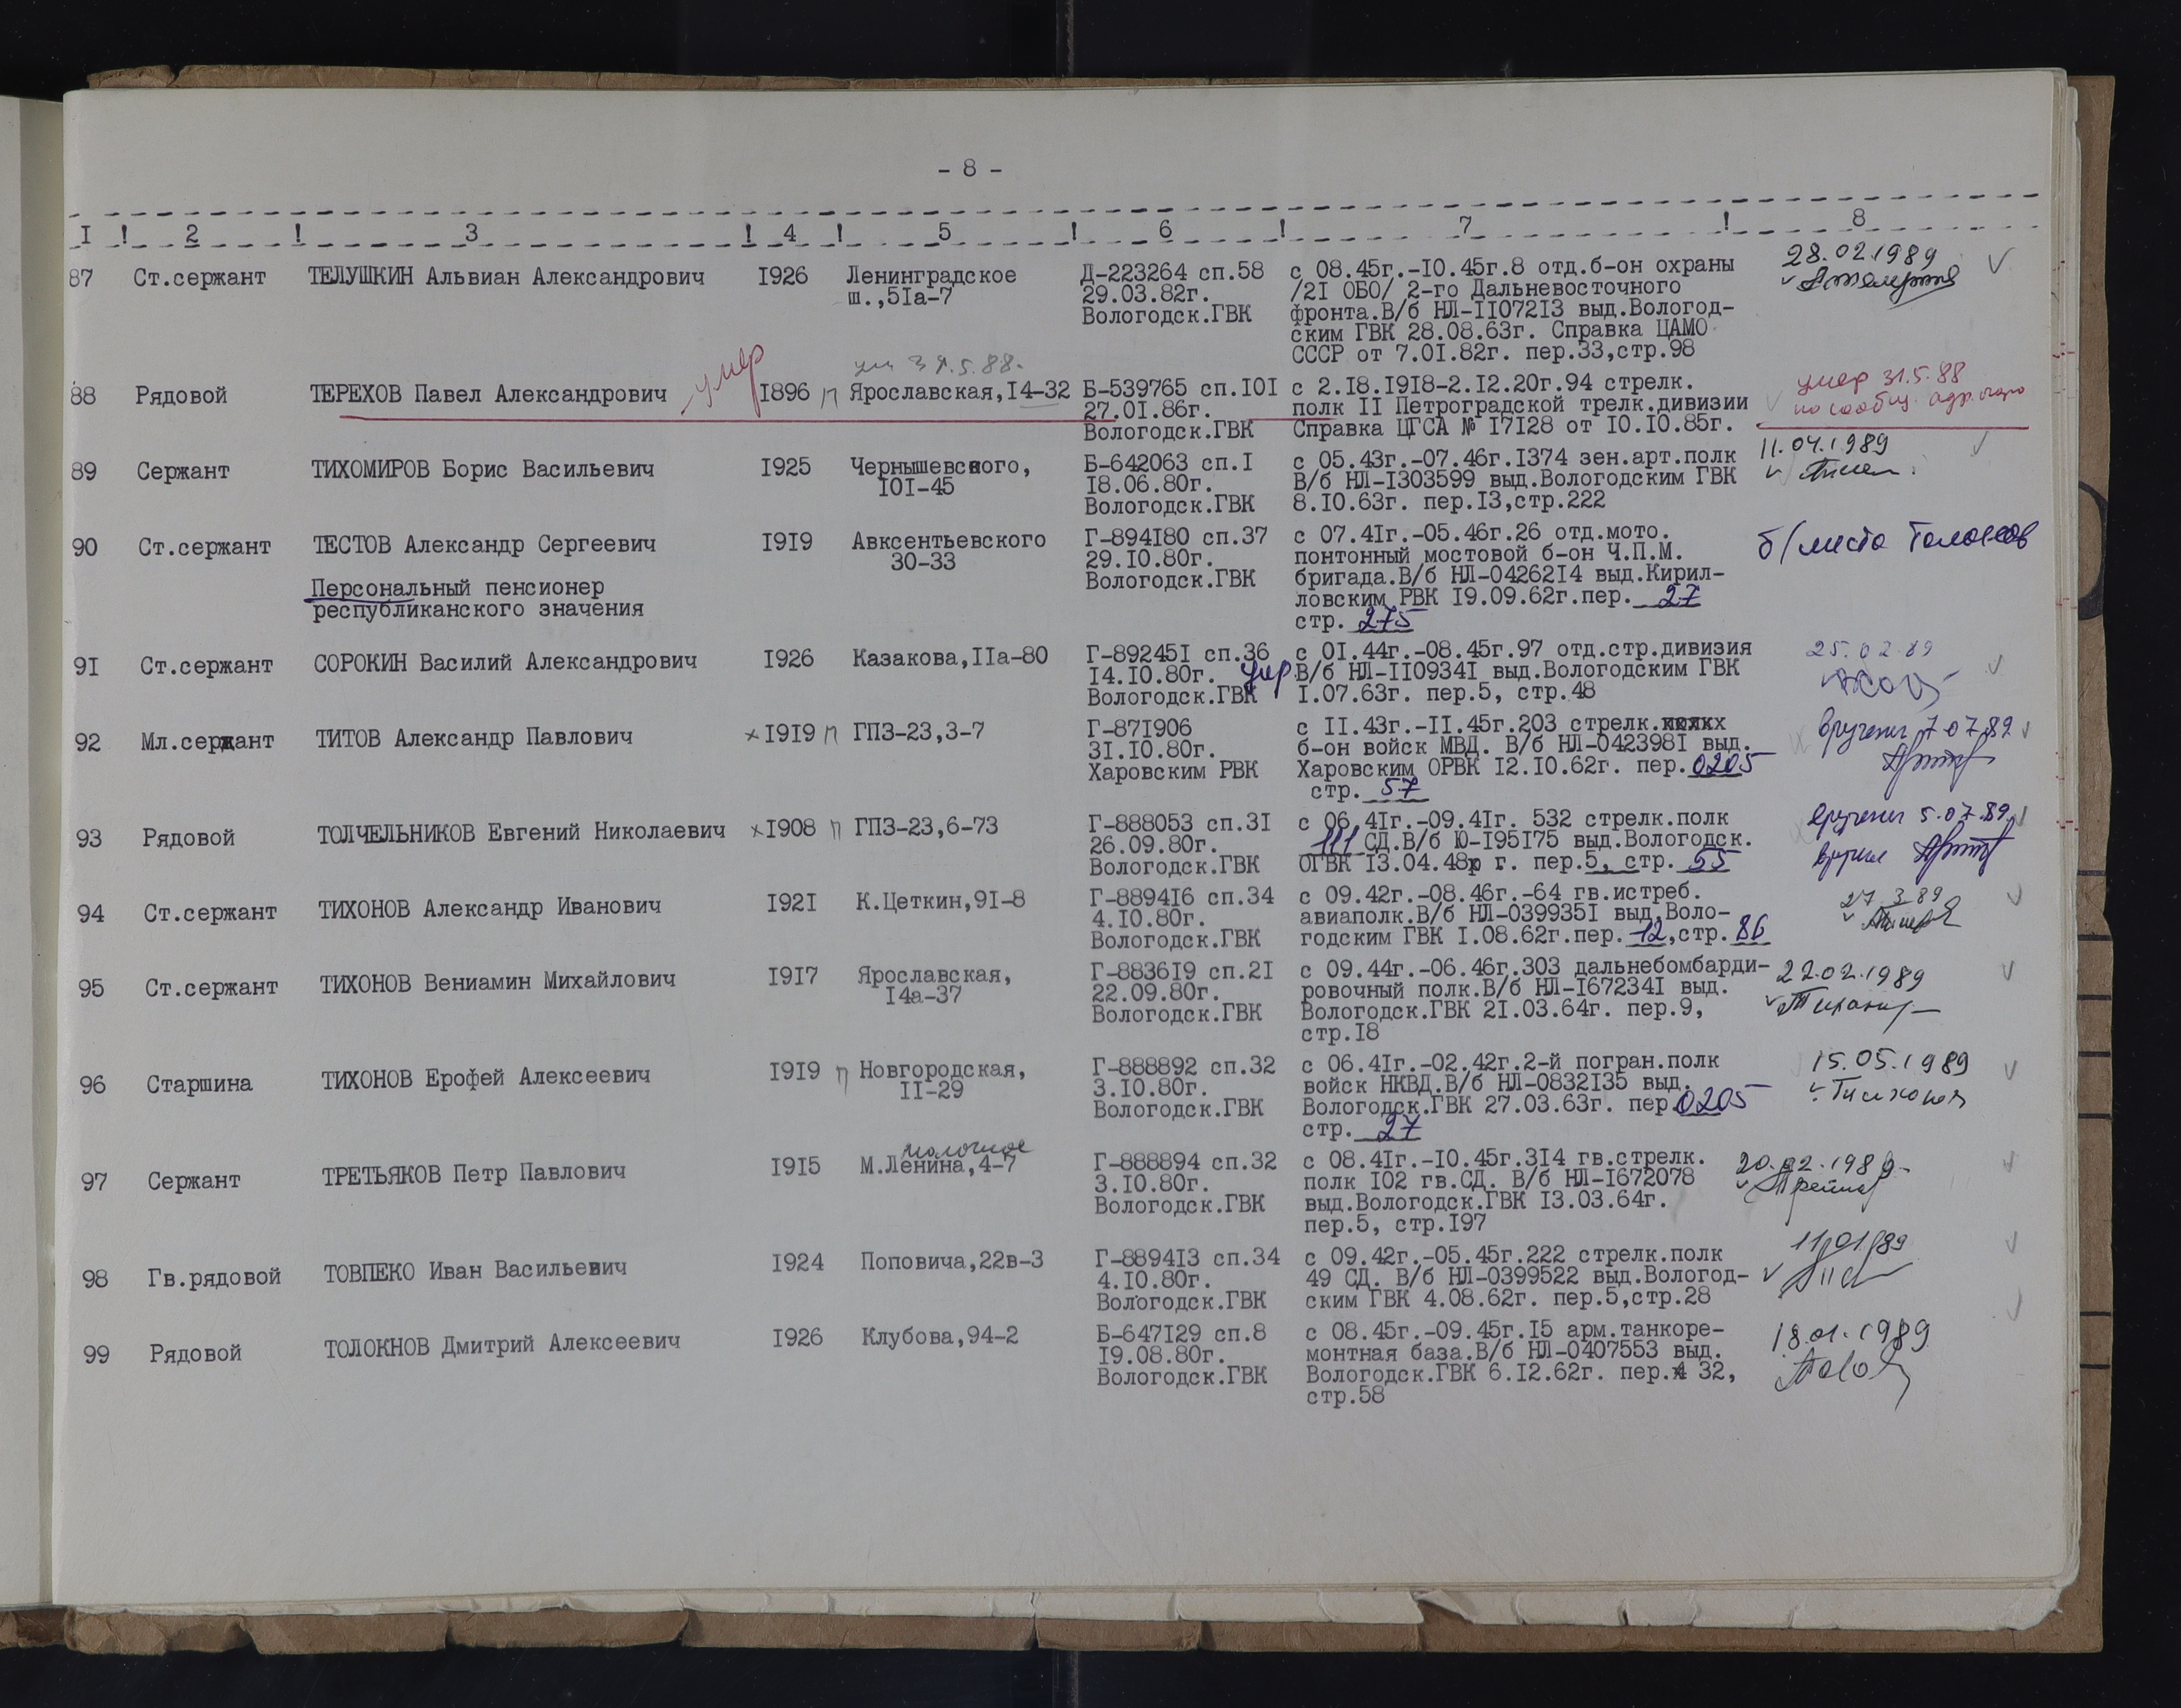 - 8 -
I ! 2 ! 3 ! 4 ! 5 ! 6 ! 7 ! 8
87 Ст.сержант ТЕЛУШКИН Альвиан Александрович I926 Ленинградское Д-223264 сп.58 с 08.45г.-I0.45г.8 отд.б-он охраны 28.02.1989
ш.,5Iа-7 29.03.82г. /2I ОБО/ 2-го Дальневосточного
Вологодск.ГВК фронта.В/б НЛ-II072I3 выд.Вологод-
ским ГВК 28.08.63г. Справка ЦАМО
СССР от 7.0I.82г. пер.33,стр.98
умер 31.5.88.
88 Рядовой ТЕРЕХОВ Павел Александрович умер I896 п Ярославская,I4-32 Б-539765 сп.I0I с 2.I8.I9I8-2.I2.20г.94 стрелк. умер 31.5.88
27.0I.86г. полк II Петроградской трелк.дивизии по сообщ. адр.бюро
Вологодск.ГВК Справка ЦГСА № I7I28 от I0.I0.85г.
89 Сержант ТИХОМИРОВ Борис Васильевич I925 Чернышевского, Б-642063 сп.I с 05.43г.-07.46г.I374 зен.арт.полк 11.04.1989
I0I-45 I8.06.80г. В/б НЛ-I303599 выд.Вологодским ГВК
Вологодск.ГВК 8.I0.63г. пер.I3,стр.222
90 Ст.сержант ТЕСТОВ Александр Сергеевич I9I9 Авксентьевского Г-894I80 сп.37 с 07.4Iг.-05.46г.26 отд.мото. б/места
30-33 29.I0.80г. понтонный мостовой б-он Ч.П.М.
Персональный пенсионер Вологодск.ГВК бригада.В/б НЛ-04262I4 выд.Кирил-
республиканского значения ловским РВК I9.09.62г.пер. 27
стр. 275
9I Ст.сержант СОРОКИН Василий Александрович I926 Казакова,IIа-80 Г-89245I сп.36 с 0I.44г.-08.45г.97 отд.стр.дивизия 25.02.89
I4.I0.80г. умр. В/б НЛ-II0934I выд.Вологодским ГВК
Вологодск.ГВК I.07.63г. пер.5, стр.48
92 Мл.сержант ТИТОВ Александр Павлович х I9I9 п ГПЗ-23,3-7 Г-87I906 с II.43г.-II.45г.203 стрелк. вручена 7.07.89
3I.I0.80г. б-он войск МВД. В/б НЛ-042398I выд.
Харовским РВК Харовским ОРВК I2.I0.62г. пер. 0205
стр. 57
93 Рядовой ТОЛЧЕЛЬНИКОВ Евгений Николаевич х I908 п ГПЗ-23,6-73 Г-888053 сп.3I с 06.4Iг.-09.4Iг. 532 стрелк.полк вручена 5.07.89
26.09.80г. 111 СД.В/б Ю-I95I75 выд.Вологодск. вручил
Вологодск.ГВК ОГВК I3.04.48 г. пер.5, стр. 55
94 Ст.сержант ТИХОНОВ Александр Иванович I92I К.Цеткин,9I-8 Г-8894I6 сп.34 с 09.42г.-08.46г.-64 гв.истреб. 27.3.89
4.I0.80г. авиаполк.В/б НЛ-039935I выд.Воло-
Вологодск.ГВК годским ГВК I.08.62г.пер. 12,стр. 86
95 Ст.сержант ТИХОНОВ Вениамин Михайлович I9I7 Ярославская, Г-8836I9 сп.2I с 09.44г.-06.46г.303 дальнебомбарди- 22.02.1989
I4а-37 22.09.80г. ровочный полк.В/б НЛ-I67234I выд.
Вологодск.ГВК Вологодск.ГВК 2I.03.64г. пер.9,
стр.I8
96 Старшина ТИХОНОВ Ерофей Алексеевич I9I9 п Новгородская, Г-888892 сп.32 с 06.4Iг.-02.42г.2-й погран.полк 15.05.1989
II-29 3.I0.80г. войск НКВД.В/б НЛ-0832I35 выд.
Вологодск.ГВК Вологодск.ГВК 27.03.63г. пер.0205
стр. 27
молочное
97 Сержант ТРЕТЬЯКОВ Петр Павлович I9I5 М.Ленина,4-7 Г-888894 сп.32 с 08.4Iг.-I0.45г.3I4 гв.стрелк. 20.02.1989
3.I0.80г. полк I02 гв.СД. В/б НЛ-I672078
Вологодск.ГВК выд.Вологодск.ГВК I3.03.64г.
пер.5, стр.I97
98 Гв.рядовой ТОВПЕКО Иван Васильевич I924 Поповича,22в-3 Г-8894I3 сп.34 с 09.42г.-05.45г.222 стрелк.полк 11/01/89
4.I0.80г. 49 СД. В/б НЛ-0399522 выд.Вологод-
Вологодск.ГВК ским ГВК 4.08.62г. пер.5,стр.28
99 Рядовой ТОЛОКНОВ Дмитрий Алексеевич I926 Клубова,94-2 Б-647I29 сп.8 с 08.45г.-09.45г.I5 арм.танкоре- 18.01.1989
I9.08.80г. монтная база.В/б НЛ-0407553 выд.
Вологодск.ГВК Вологодск.ГВК 6.I2.62г. пер. 32,
стр.58